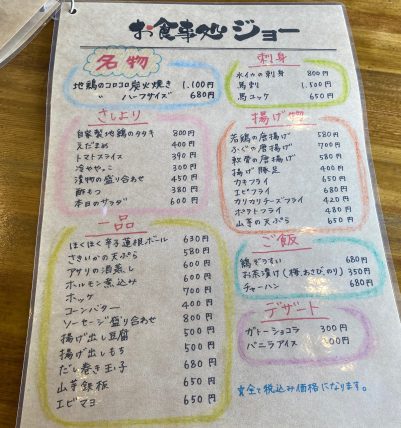 お食事処 ジョー
名物
地鶏のコロコロ炭火焼き 1.100円
〃 ハーフサイズ 680円
さしより
自家製地鶏のタタキ 800円
えだまめ 400円
トマトスライス 390円
冷ややっこ 300円
漬物の盛り合わせ 450円
酢もつ 380円
本日のサラダ 600円
一品
ほくほく辛子蓮根ボール 630円
さきいかの天ぷら 580円
アサリの酒蒸し 600円
ホルモン煮込み 600円
ホッケ 700円
コーンバター 400円
ソーセージ盛り合わせ 800円
揚げ出し豆腐 500円
揚げ出しもち 500円
だし巻き玉子 680円
山芋鉄板 650円
エビマヨ 650円
刺身
水イカの刺身 800円
馬刺し 1.500円
馬ユッケ 650円
揚げ物
若鶏の唐揚げ 580円
ふぐの唐揚げ 700円
軟骨の唐揚げ 580円
揚げ豚足 400円
カキフライ 650円
エビフライ 680円
カリカリチーズフライ 420円
ポテトフライ 480円
山芋の天ぷら 650円
ご飯
鶏ぞうすい 680円
お茶漬け(梅、わさび、のり) 350円
チャーハン 680円
デザート
ガトーショコラ 300円
バニラアイス 200円
全て税込み価格になります。